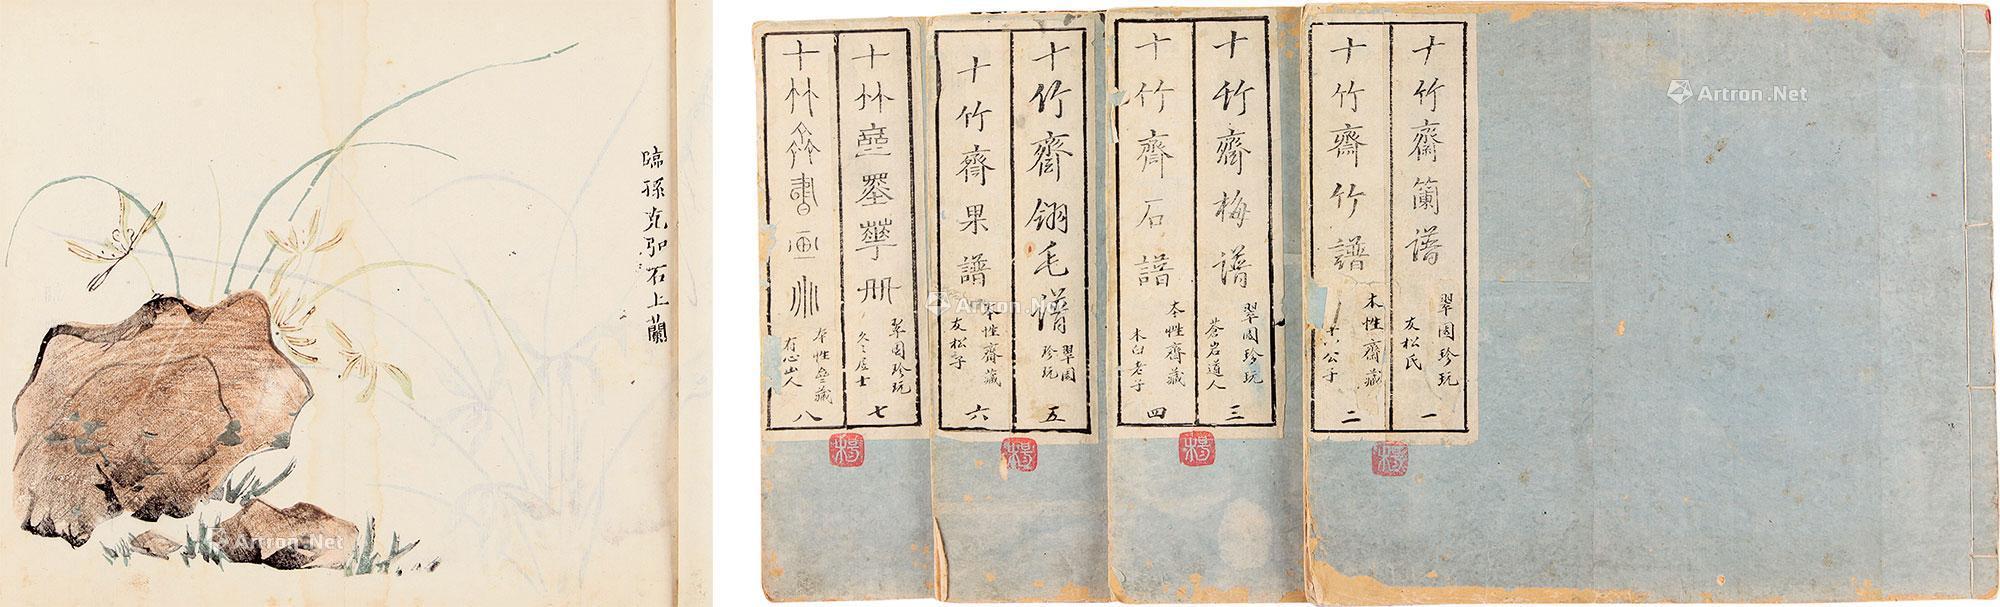 臨孫克弘石上蘭
十竹齋蘭譜
翠園珍玩
友松氏
一
十竹齋竹譜
本性齋藏
十八公子
二
十竹齋梅譜
翠園珍玩
蒼岩道人
三
十竹齋石譜
本性齋藏
木白老子
四
十竹齋翎毛譜
翠園
珍玩
五
十竹齋果譜
本性齋藏
友松子
六
十竹齋墨華冊
翠園珍玩
久々居士
七
十竹齋書画冊
本性齋藏
有心山人
八
Artron.Net
Artron.Net
Artron.Net
Artron.Net